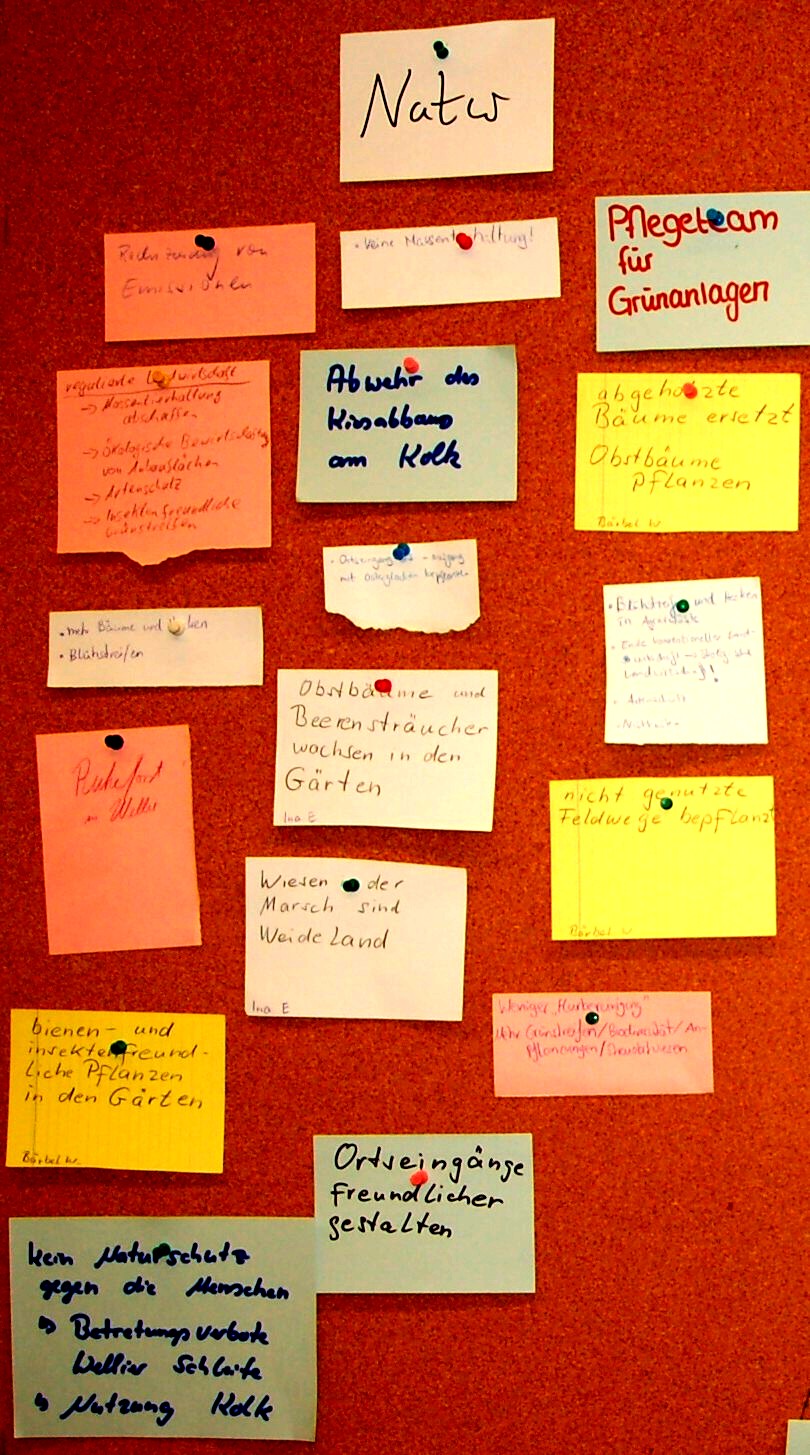 Natur
Reduzierung von
Emissionen
• Keine Massentierhaltung!
Pflegeteam
für
Grünanlagen
regulierte Landwirtschaft
→ Massentierhaltung
abschaffen
→ Ökologische Bewirtschaftung
von Anbauflächen
→ Artenschutz
→ Insektenfreundliche
Grünstreifen
Abwehr des
Kiesabbaus
am Kolk
abgeholzte
Bäume ersetzt
Obstbäume
pflanzen
Bärbel W
• Ortseingang
mit Osterglocken bepflanzen
• mehr Bäume und
• Blühstreifen
• Blühstreifen und Hecken
in
• Ende konventioneller Land-
wirtschaft
Landwirtschaft!
• Artenschutz
Obstbäume und
Beerensträucher
wachsen in den
Gärten
Ina E
Ruheforst
in Wellie
nicht genutzte
Feldwege bepflanzt
Bärbel W
Wiesen der
Marsch sind
Weideland
Ina E
Weniger „Flurbereinigung"
Mehr Grünstreifen/Biodiversität/An-
pflanzungen/Streuobstwiesen
bienen- und
insektenfreund-
liche Pflanzen
in den Gärten
Bärbel W.
Ortseingänge
freundlicher
gestalten
kein Naturschutz
gegen die Menschen
↳ Betretungsverbote
Wellier Schleife
↳ Nutzung Kolk